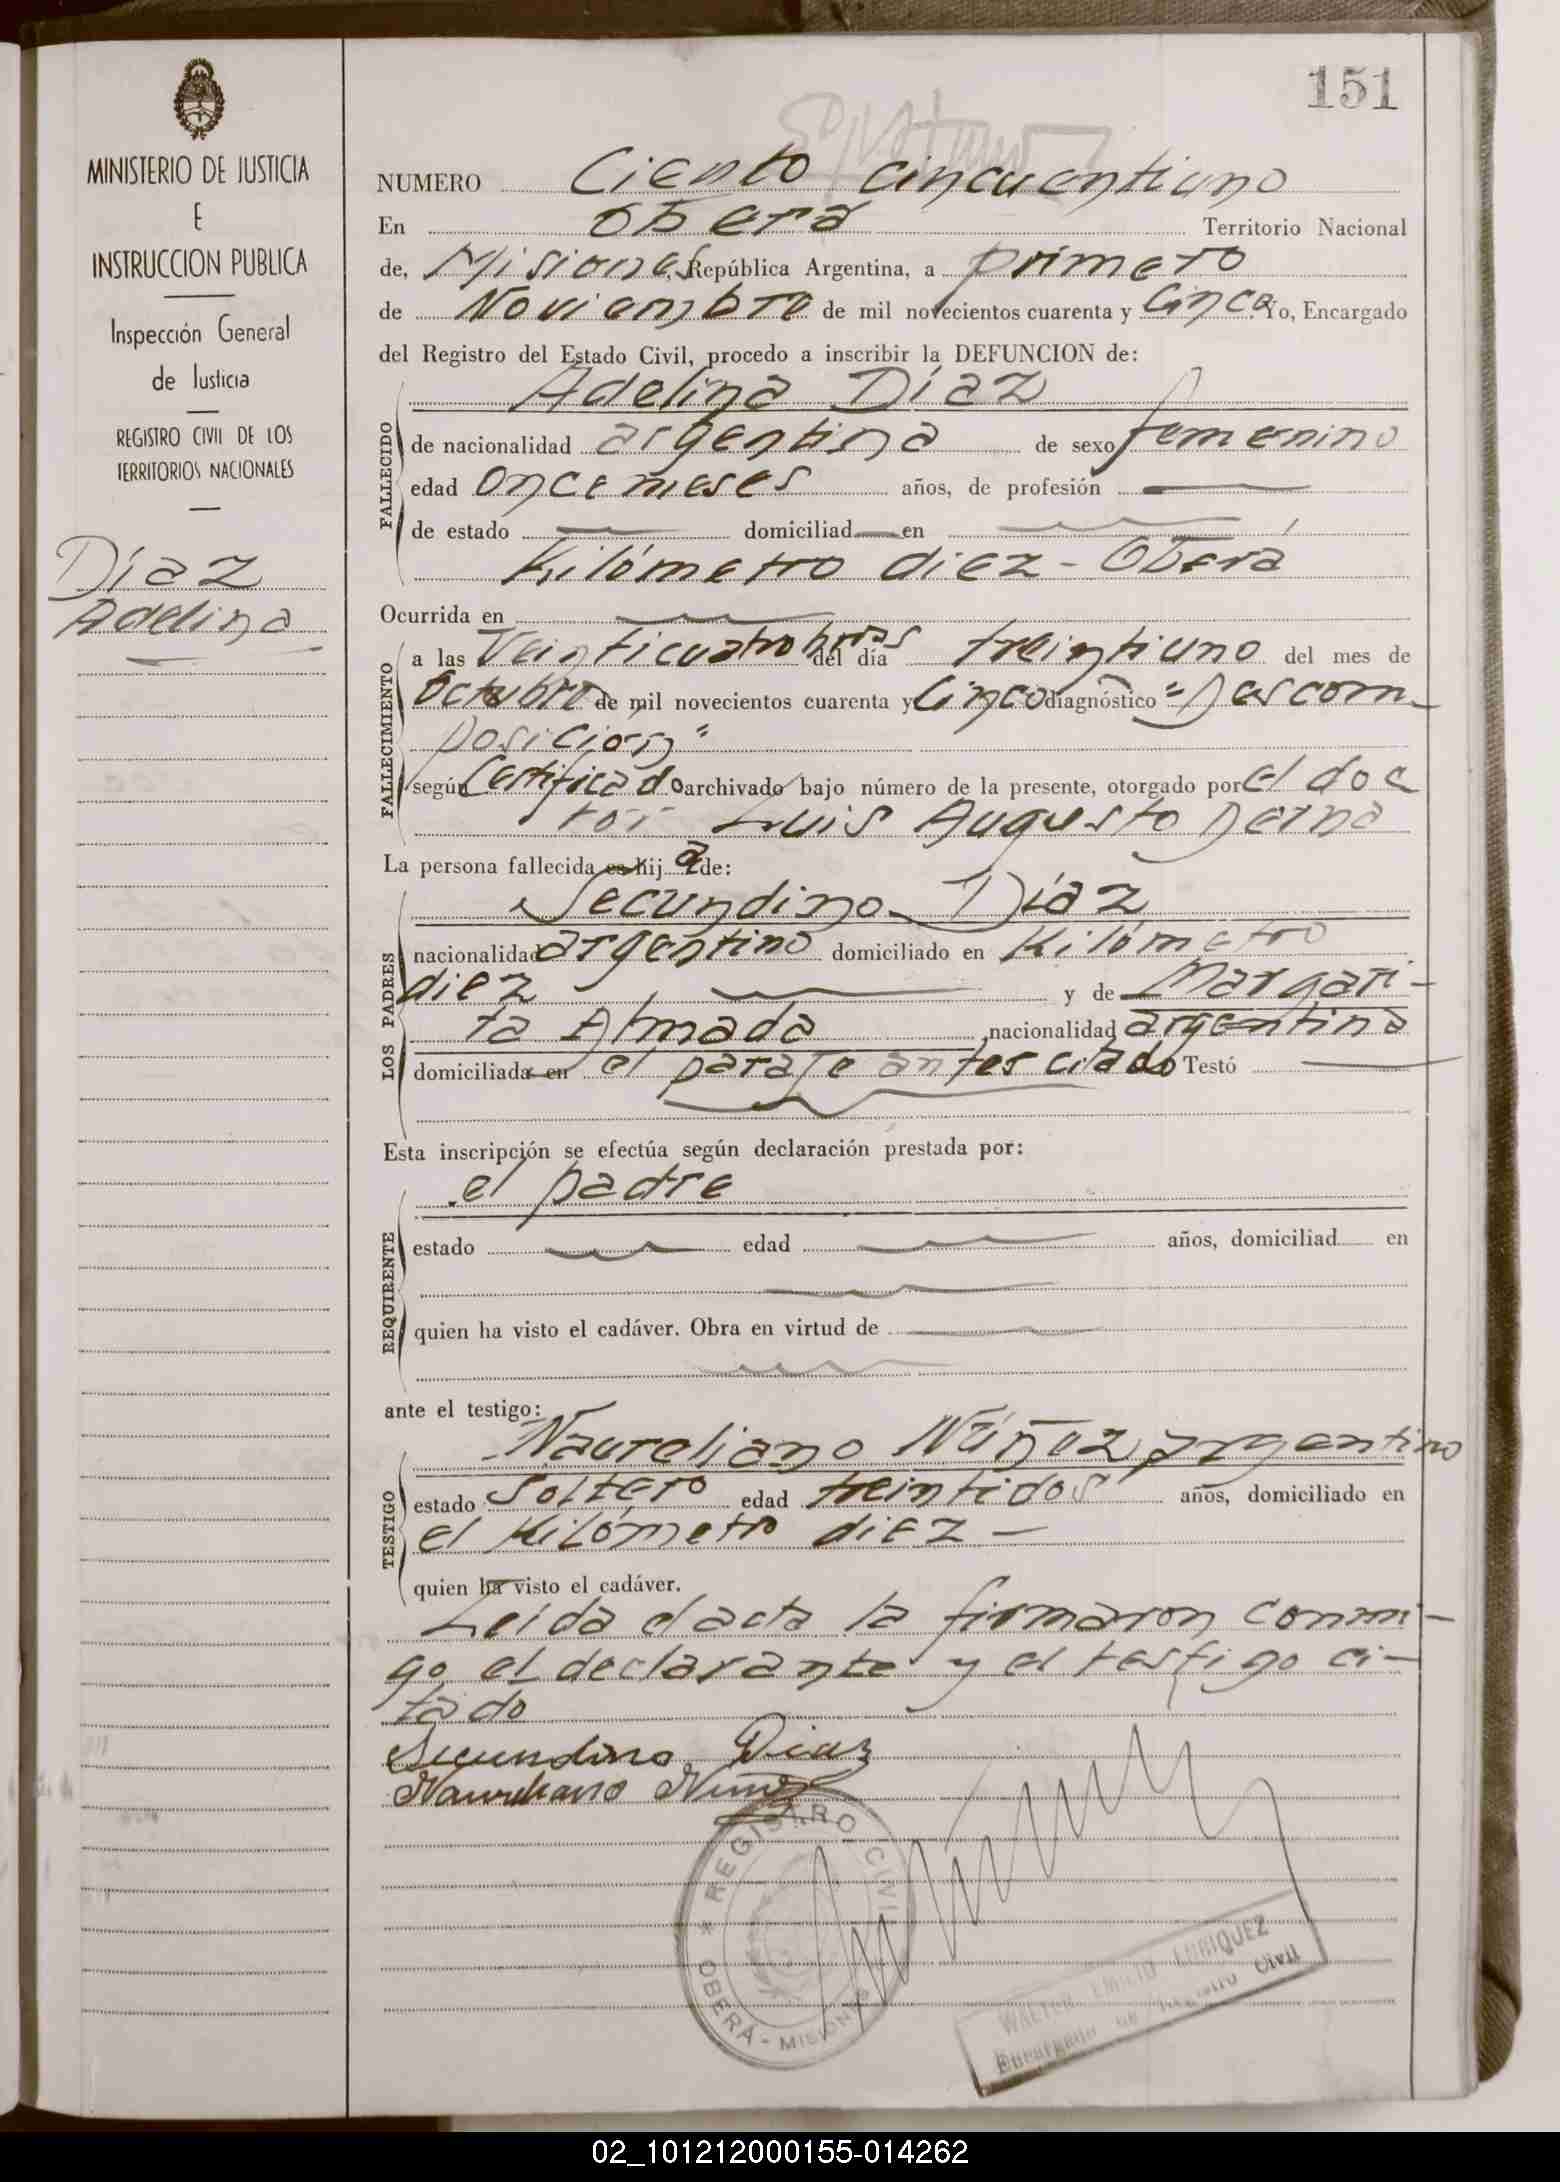 151
MINISTERIO DE JUSTICIA
E
INSTRUCCION PUBLICA
Inspección General
de Justicia
REGISTRO CIVIL DE LOS
TERRITORIOS NACIONALES
Díaz
Adelina
NUMERO Ciento cincuentiuno
En Oberá Territorio Nacional
de, Misiones, República Argentina, a primero
de Noviembre de mil novecientos cuarenta y Cinco Yo, Encargado
del Registro del Estado Civil, procedo a inscribir la DEFUNCION de:
FALLECIDO
Adelina Díaz
de nacionalidad argentina de sexo femenino
edad once meses años, de profesión
de estado domiciliad en
Kilómetro diez - Oberá
Ocurrida en
FALLECIMIENTO
a las Veinticuatro horas del día treintiuno del mes de
Octubre de mil novecientos cuarenta y Cinco diagnóstico "Descom-
posición"
según Certificado archivado bajo número de la presente, otorgado por el doc
tor Luis Augusto Derna
La persona fallecida es hija de:
LOS PADRES
Secundino Díaz
nacionalidad argentino domiciliado en Kilómetro
diez y de Margari-
ta Almada nacionalidad argentina
domiciliada en el paraje antes citado Testó
Esta inscripción se efectúa según declaración prestada por:
REQUIRENTE
el padre
estado edad años, domiciliad en
quien ha visto el cadáver. Obra en virtud de
ante el testigo:
TESTIGO
Naureliano Núñez argentino
estado soltero edad treintidos años, domiciliado en
el Kilómetro diez -
quien ha visto el cadáver.
Leída el acta la firmaron conmi-
go el declarante y el testigo ci-
tado
Secundino Diaz
Naureliano Nuñez
REGISTRO CIVIL
OBERÁ - MISIONES
WALTER EMILIO ENRIQUEZ
Encargado del Registro Civil
02_101212000155-014262